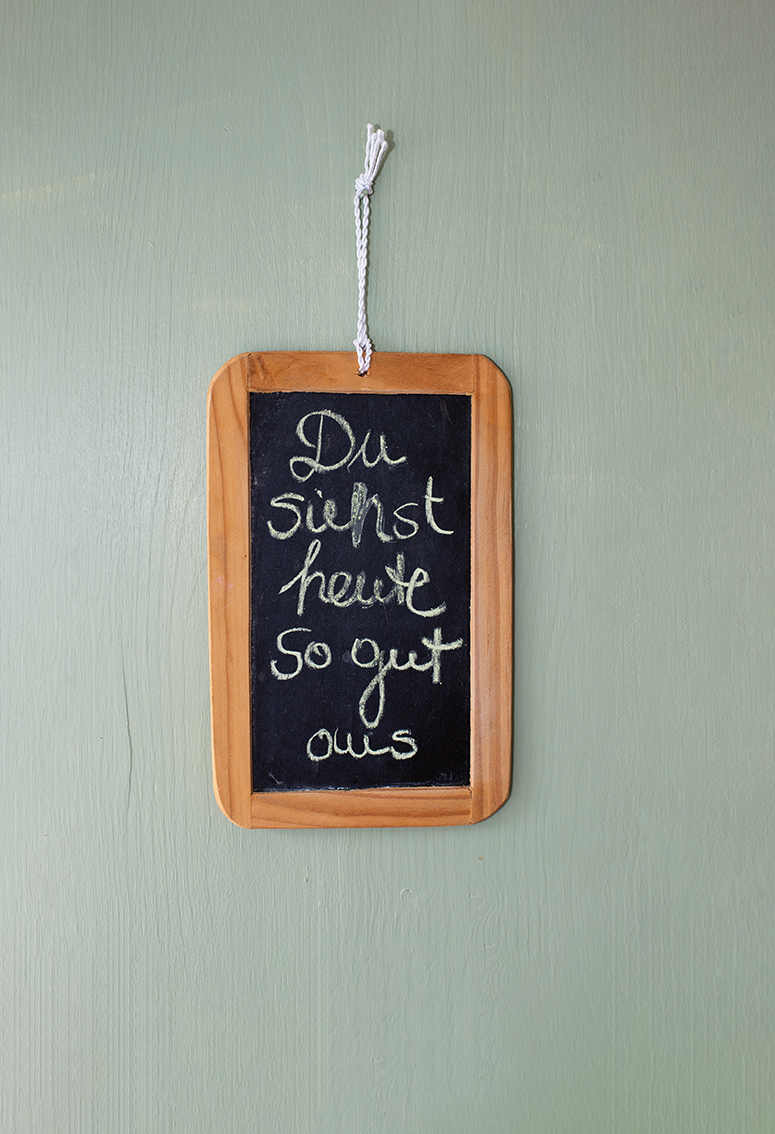 Du
siehst
heute
so gut
aus